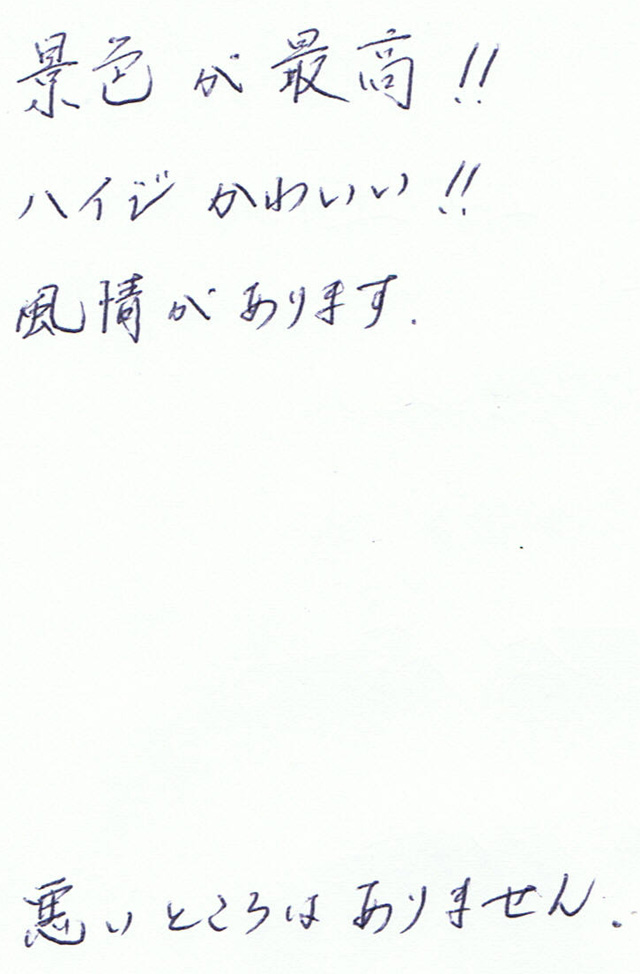 景色が最高!!
ハイジかわいい!!
風情があります.
悪いところはありません.